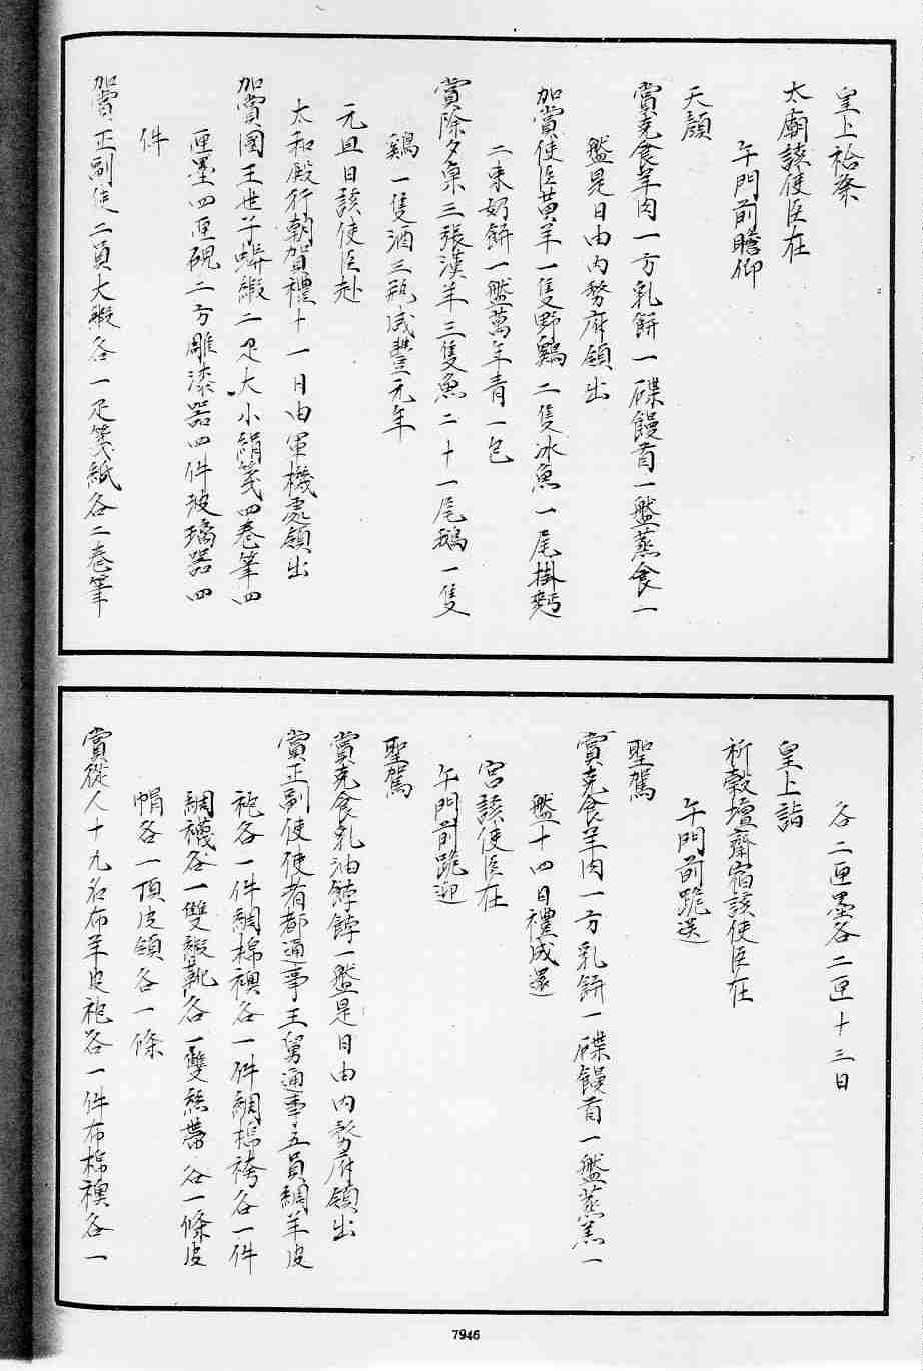 皇上祫祭
太廟該使臣在
午門前瞻仰
天顏
賞克食羊肉一方乳餅一碟饅首一盤蒸食一
盤是日由內務府領出
加賞使臣黃羊一隻野鷄二隻冰魚一尾掛麪
二束奶餅一盤萬年青一包
賞除夕桌三張漢羊三隻魚二十一尾鵝一隻
鷄一隻酒三瓶咸豐元年
元旦日該使臣赴
太和殿行朝賀禮十一日由軍機處領出
加賞國王世子蟒緞二疋大小絹箋四卷筆四
匣墨四匣硯二方雕漆器四件玻璃器四
件
加賞正副使二員大緞各一疋箋紙各二卷筆
各二匣墨各二匣十三日
皇上詣
祈穀壇齋宿該使臣在
午門前跪送
聖駕
賞克食羊肉一方乳餅一碟饅首一盤蒸羔一
盤十四日禮成還
宮該使臣在
午門前跪迎
聖駕
賞克食乳油餑餑一盤是日由內務府領出
賞正副使使者都通事王舅通事五員綢羊皮
袍各一件綢棉襖各一件綢棉袴各一件
綢襪各一雙緞靴各一雙絲帶各一條皮
帽各一頂皮領各一條
賞從人十九名布羊皮袍各一件布棉襖各一
7946